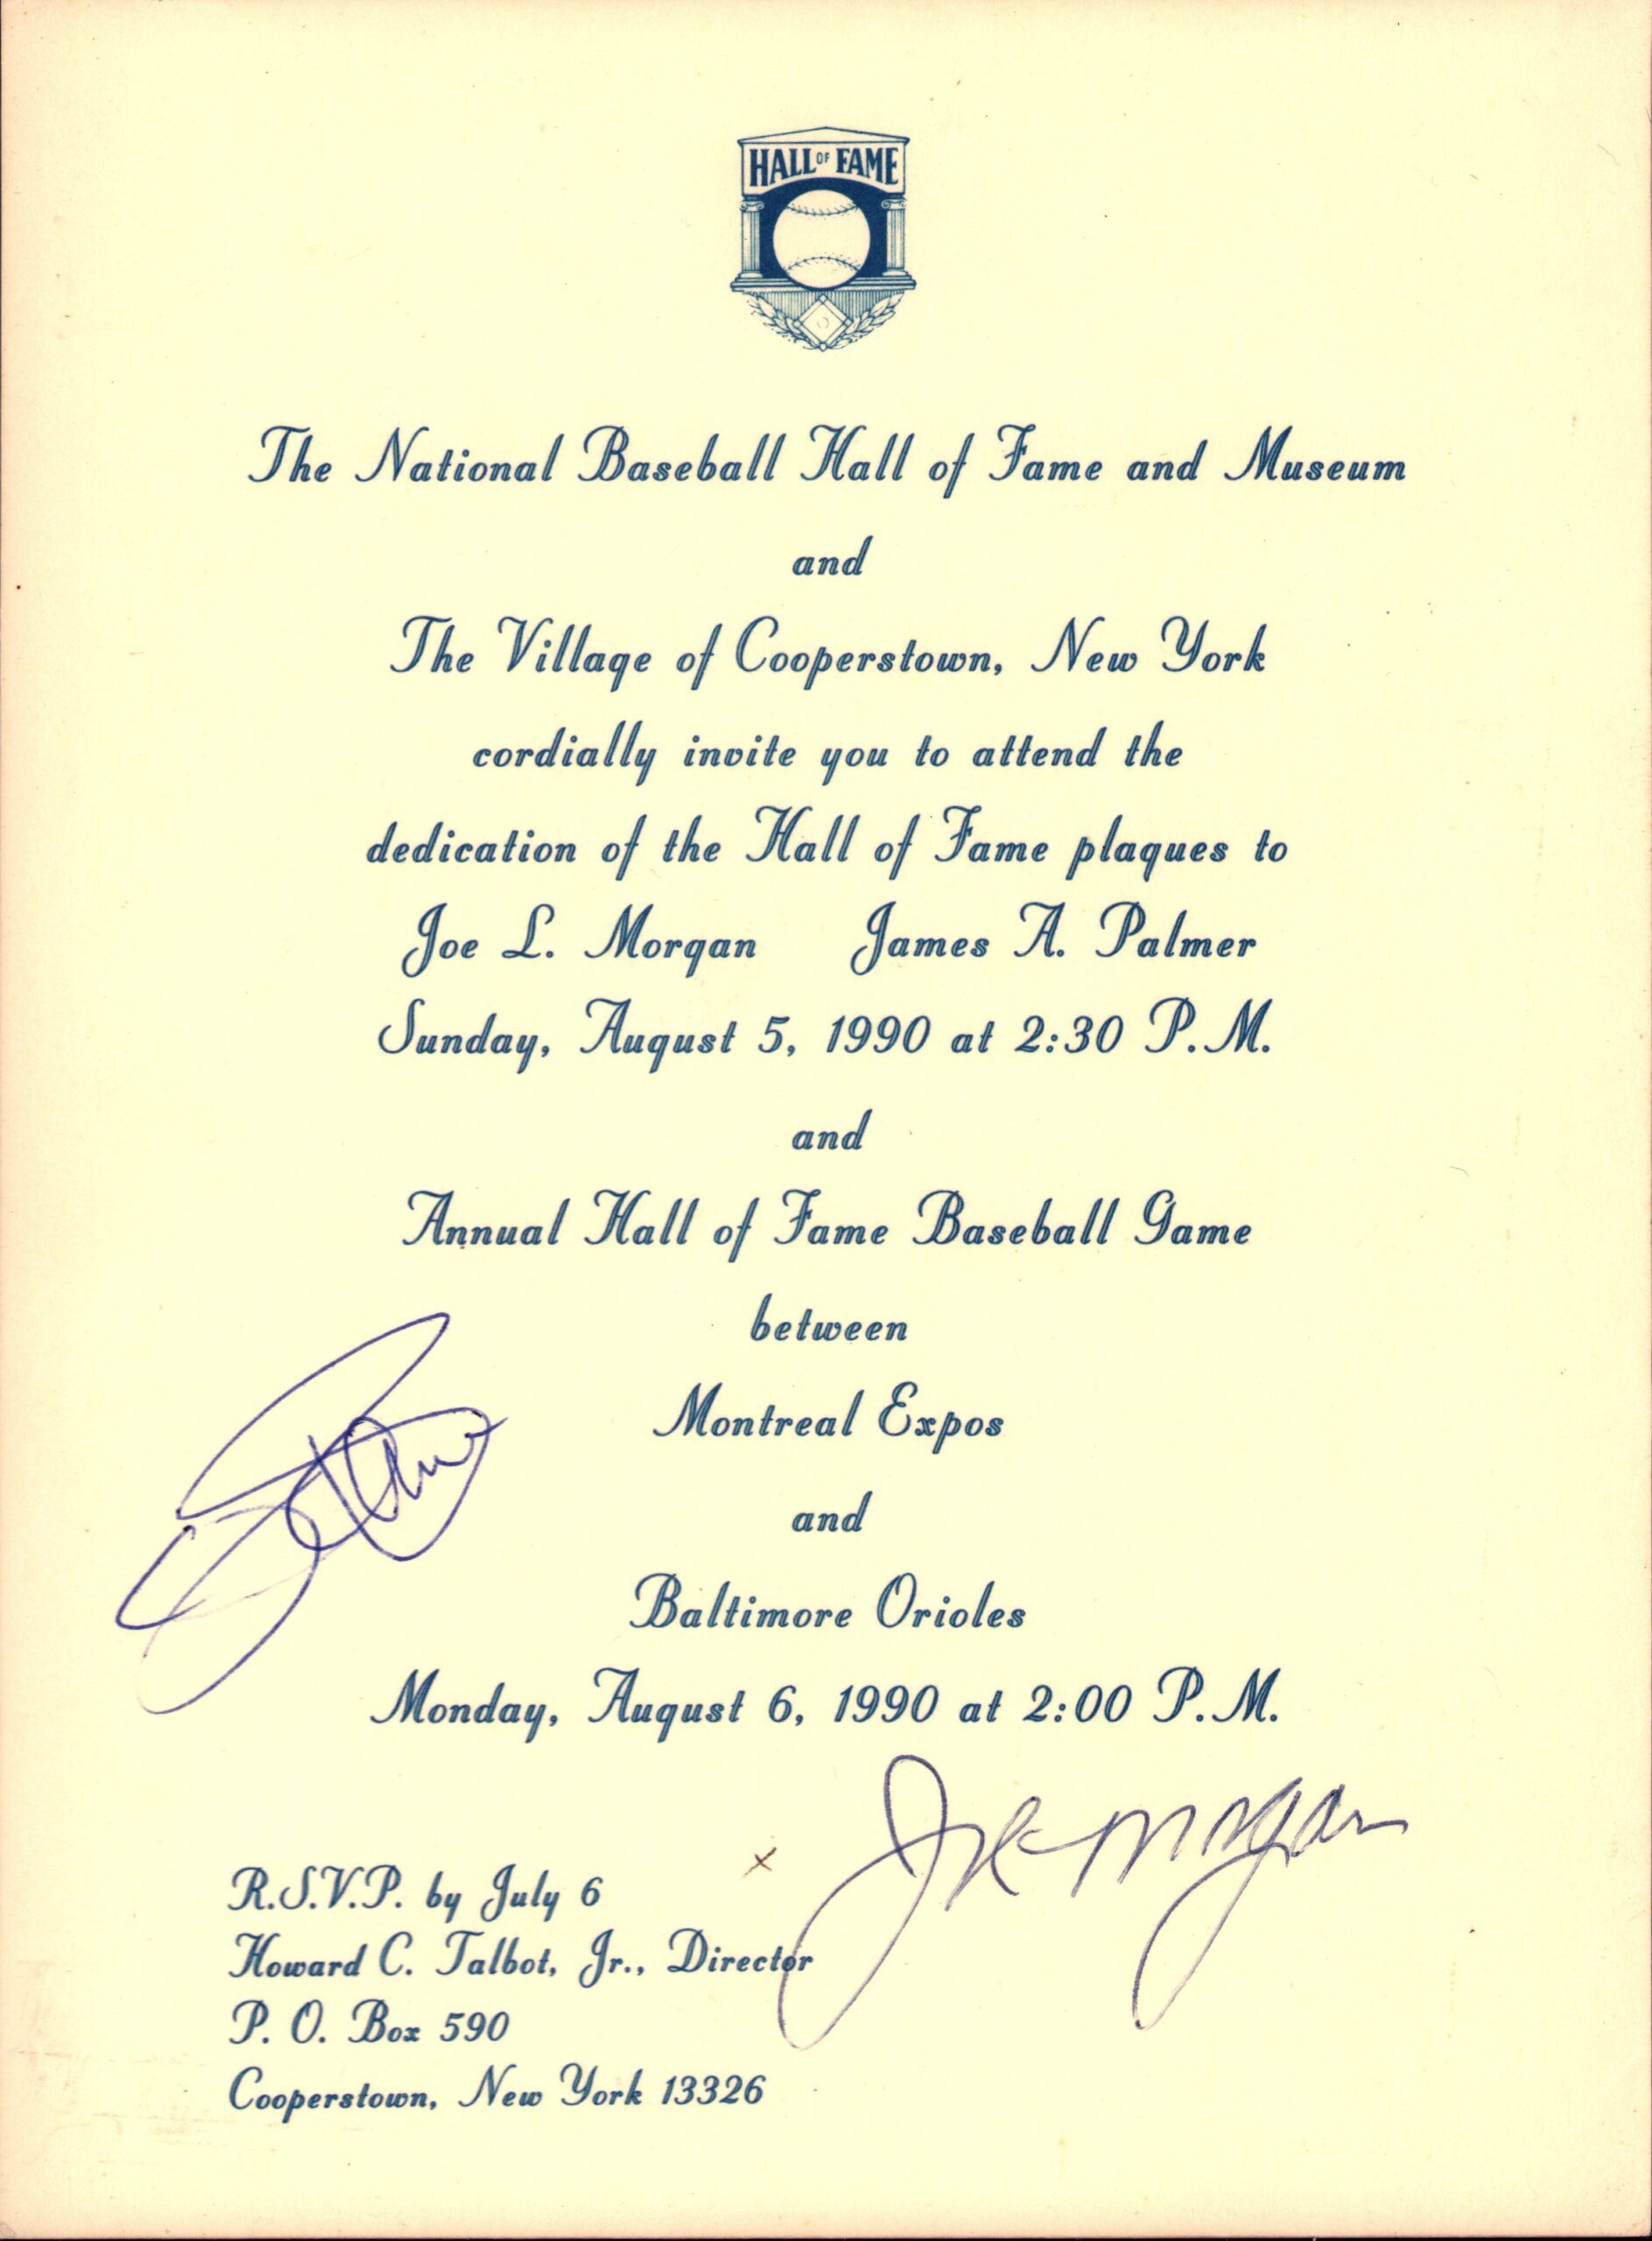 HALL OF FAME
The National Baseball Hall of Fame and Museum
and
The Village of Cooperstown, New York
cordially invite you to attend the
dedication of the Hall of Fame plaques to
Joe L. Morgan James A. Palmer
Sunday, August 5, 1990 at 2:30 P.M.
and
Annual Hall of Fame Baseball Game
between
Montreal Expos
and
Baltimore Orioles
Monday, August 6, 1990 at 2:00 P.M.
Joe Morgan
x
R.S.V.P. by July 6
Howard C. Talbot, Jr., Director
P. O. Box 590
Cooperstown, New York 13326